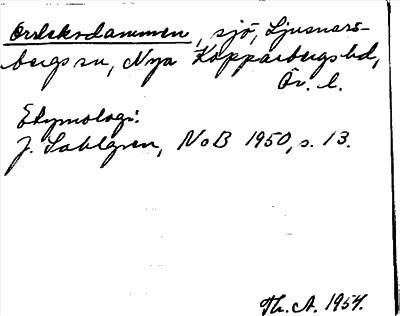 Orslcksdammen, sjö, Ljusnars-
bergs sn, Nya Kopparbergs bd,
Ör. l.
Etymologi:
J. Sahlgren, NoB 1950, s. 13.
Th. A. 1954.